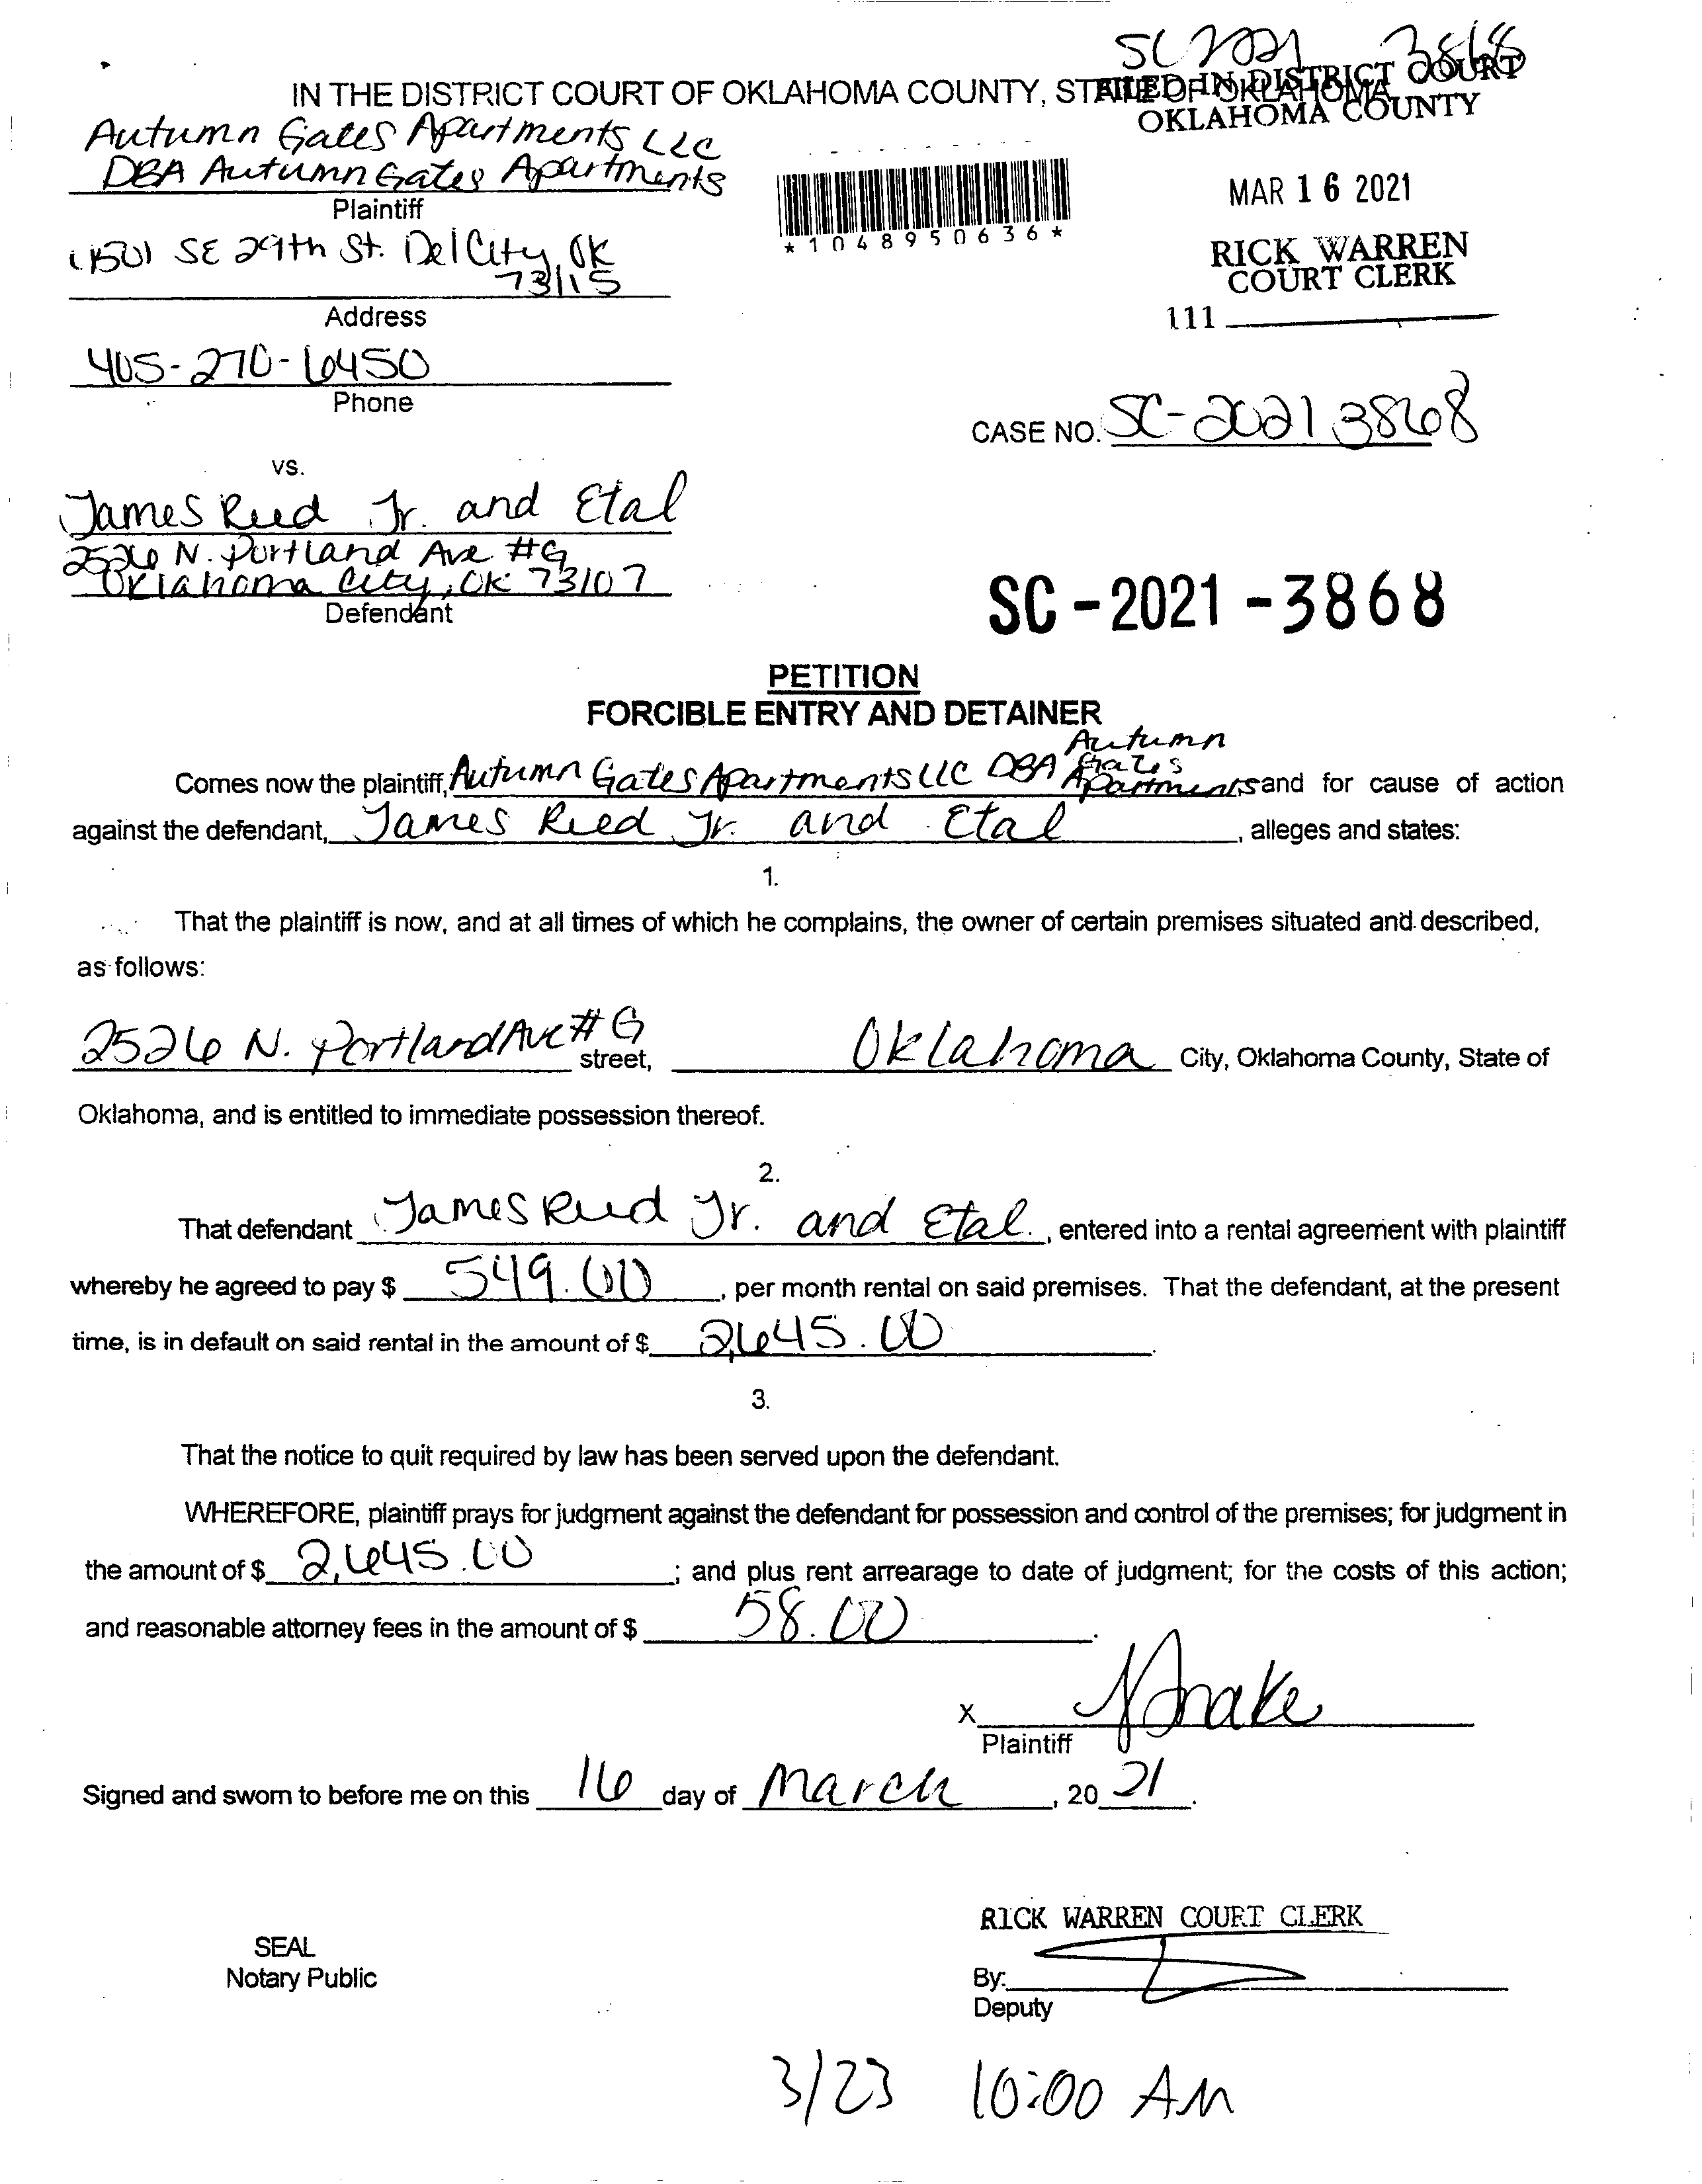 SC 2021 3868
IN THE DISTRICT COURT OF OKLAHOMA COUNTY, STATE OF OKLAHOMA
FILED IN DISTRICT COURT
OKLAHOMA COUNTY
Autumn Gates Apartments LLC
DBA Autumn Gates Apartments
Plaintiff
MAR 16 2021
*1048950636*
SE 29th St. Del City, OK
73115
RICK WARREN
COURT CLERK
Address
111
405-270-6450
Phone
CASE NO. SC-2021 3868
VS.
James Reed Jr. and Etal
2526 N. Portland Ave #G
Oklahoma City, OK 73107
Defendant
SC-2021-3868
PETITION
FORCIBLE ENTRY AND DETAINER
Comes now the plaintiff, Autumn Gates Apartments LLC DBA Autumn Gates Apartments and for cause of action
against the defendant, James Reed Jr. and Etal, alleges and states:
1.
That the plaintiff is now, and at all times of which he complains, the owner of certain premises situated and described,
as follows:
2526 N. Portland Ave #G street, Oklahoma City, Oklahoma County, State of
Oklahoma, and is entitled to immediate possession thereof.
2.
That defendant James Reed Jr. and Etal., entered into a rental agreement with plaintiff
whereby he agreed to pay $ 549.00, per month rental on said premises. That the defendant, at the present
time, is in default on said rental in the amount of $ 2,645.00.
3.
That the notice to quit required by law has been served upon the defendant.
WHEREFORE, plaintiff prays for judgment against the defendant for possession and control of the premises; for judgment in
the amount of $ 2,645.00; and plus rent arrearage to date of judgment; for the costs of this action;
and reasonable attorney fees in the amount of $ 58.00.
X
Plaintiff
Signed and sworn to before me on this 16 day of March, 20 21.
RICK WARREN COURT CLERK
SEAL
Notary Public
By:
Deputy
3/23 10:00 AM